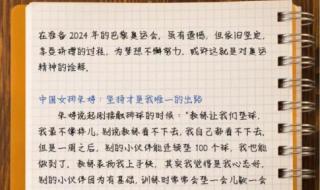 在准备2024年的巴黎奥运会。虽有遗憾，但依旧坚定。
享受拼搏的过程，为梦想不懈努力，或许这就是对奥运
精神的诠释。
中国女排朱婷：坚持才是我唯一的出路
朱婷说起刚接触排球的时候：“教练让我们垫球，
我最不像样儿，别说教练看不下去，我自己都看不下去。
但是一周之后，别的小伙伴能连续垫100个球，我也能
做到了，教练表扬我上手快，其实我觉得是我心态好，
别的小伙伴因为有基础，训练时常常会垫一会儿歇一会